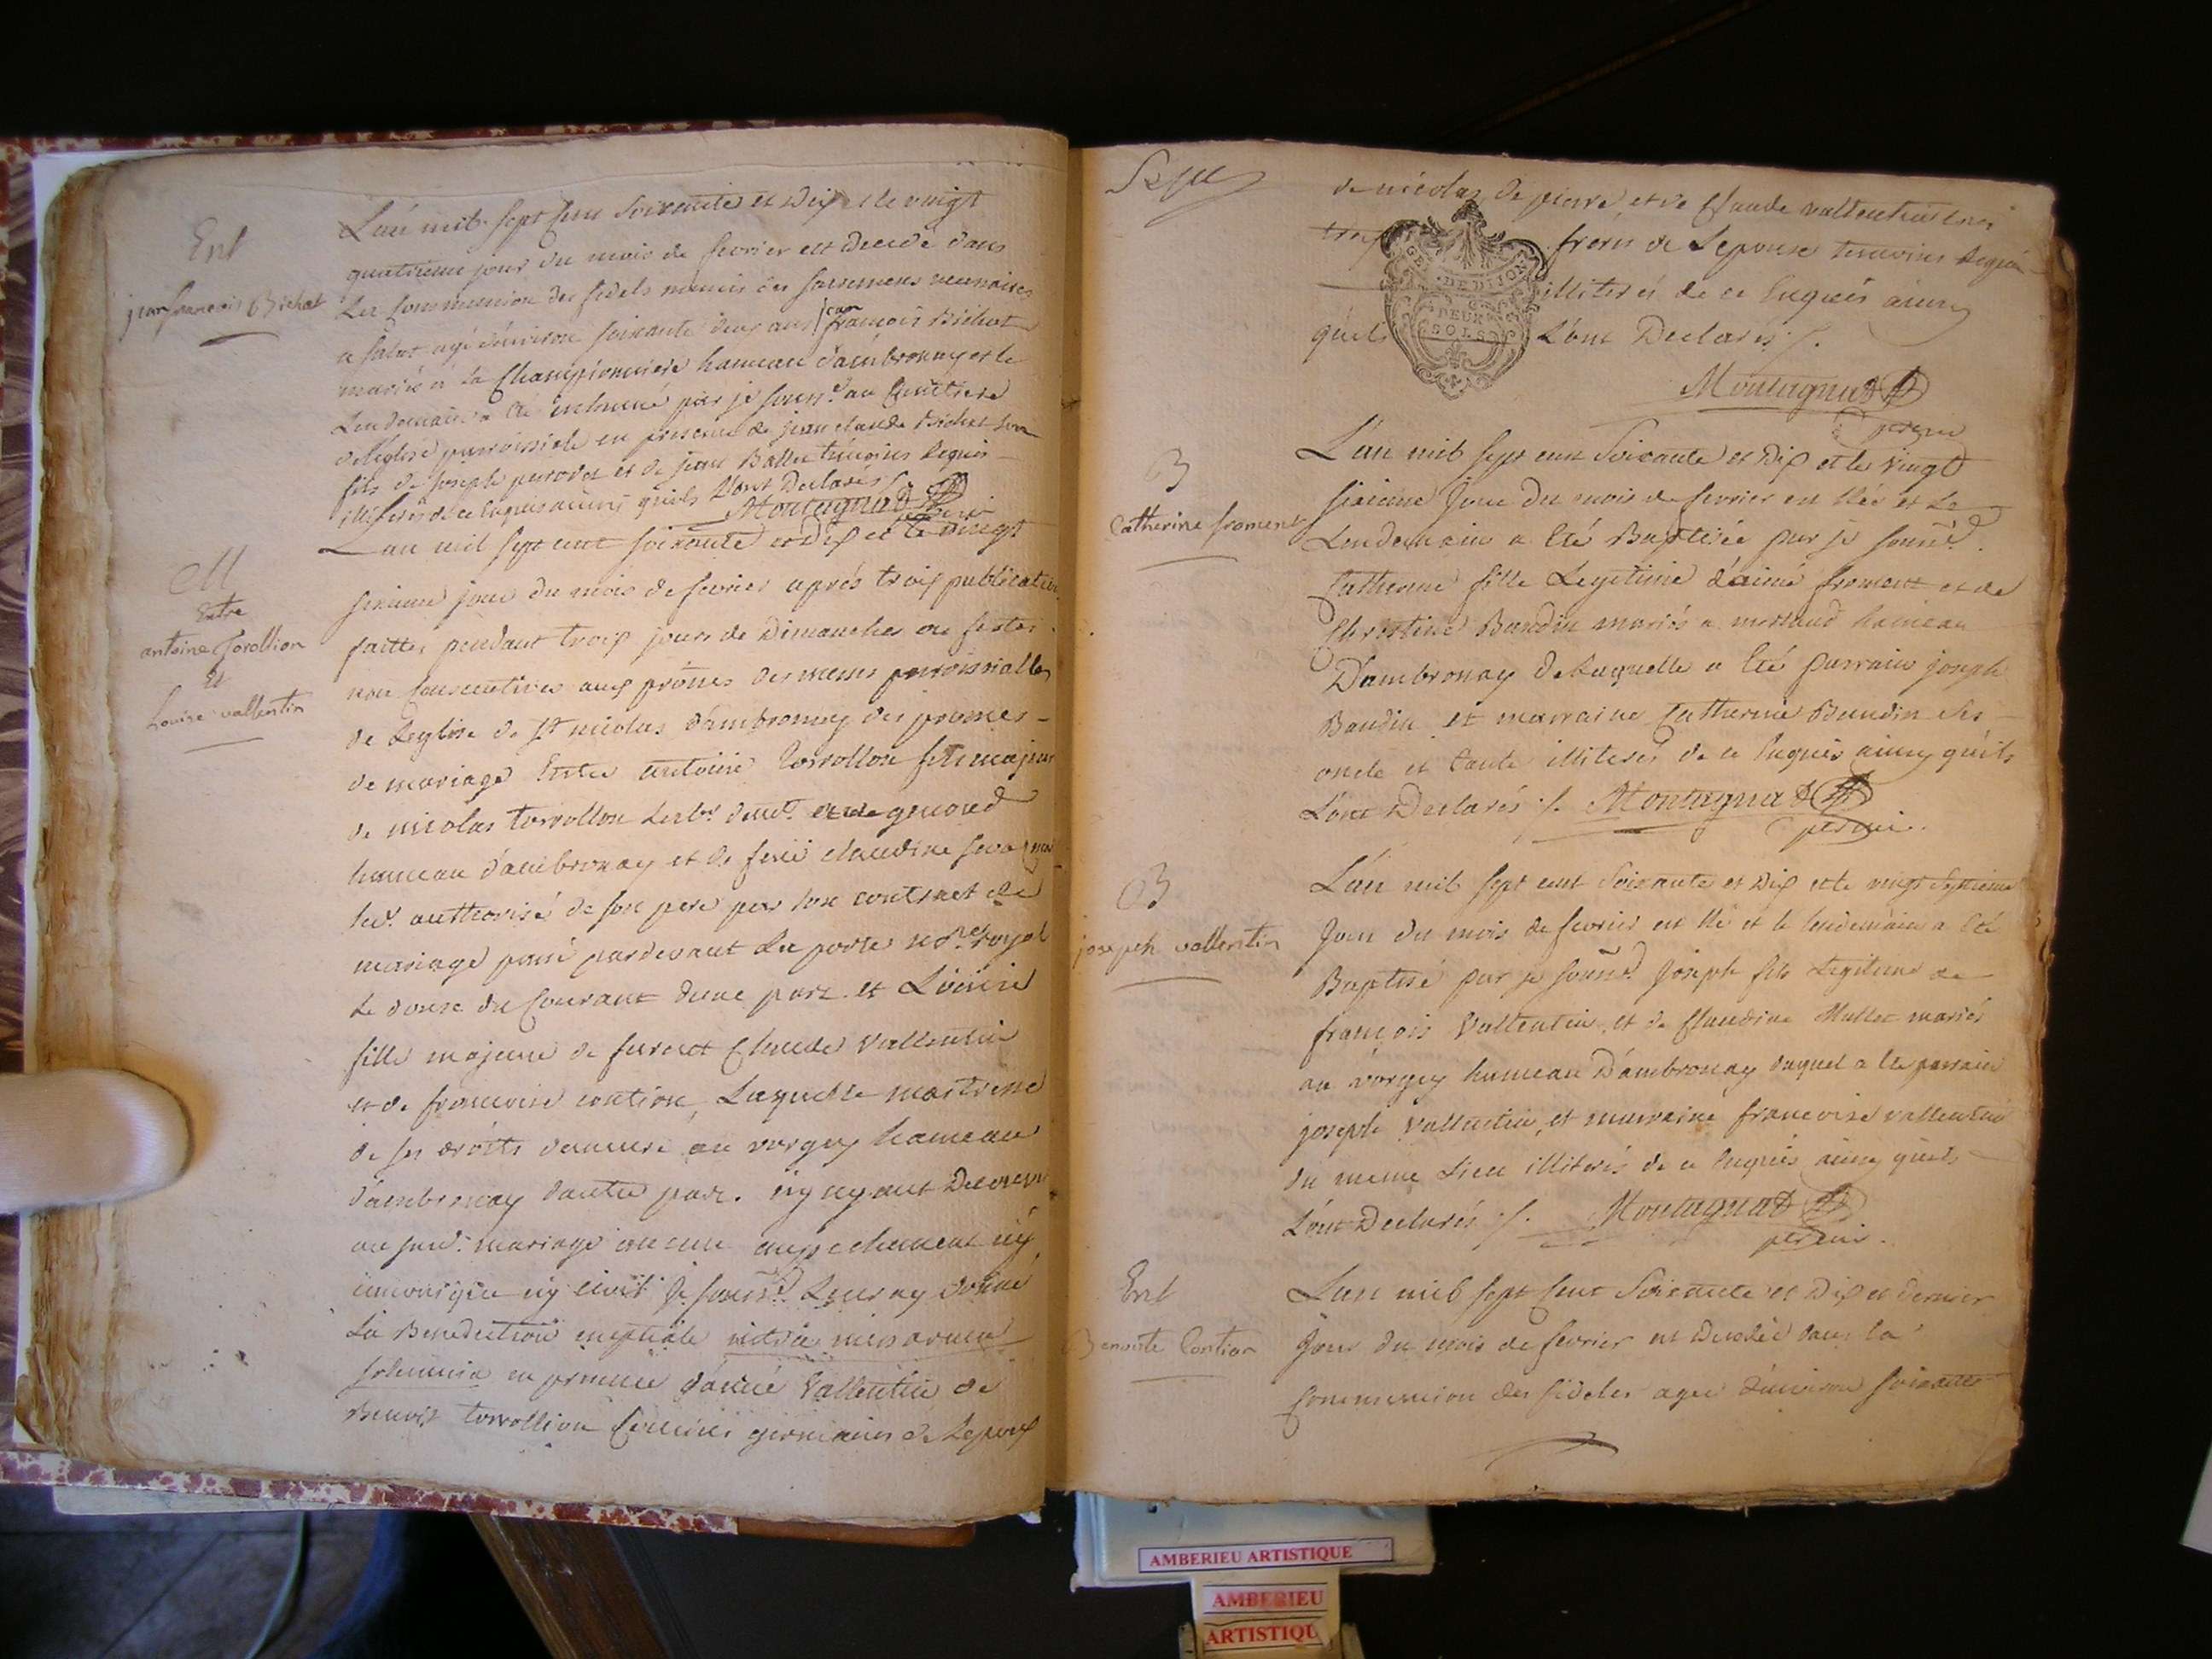 Ent
jean francois Bichat
L'an mil sept cent soixante et dix et le vingt
quatrieme jour du mois de fevrier est decedé dans
La Communion des fidels munis des sacremens necessaires
a salut agé d'environ soixante deux ans jean françois Bichat
mariés à la Championniere hameau d'ambronay et le
Lendemain a été inhumé par je souss.é au Cimetiere
de l'église parroissiale en presence de jean claude Bichat son
fils de joseph perrodet et de jean Ballet témoins Requis
illiterés de ce Enquis ainsi quils L'ont Declarés
Montagnat
M
Entre
antoine torollion
Et
Louise vallentin
L'an mil sept cent soixante et dix et le vingt
sixieme jour du mois de fevrier aprés trois publications
faittes pendant trois jours de Dimanches ou festes
non consecutives aux prônes des messes parroissialles
de Leglise de St nicolas d'ambronay des promesses
de mariage Entre antoine torrollon fils majeur
de nicolas torrollon Lab.r dem.t genoud
hameau d'ambronay et de feüe claudine
led. authorisé de son pere par son contract de
mariage passé pardevant royal
Le douse du Courant d'une part et Loüise
fille majeure de feu Claude Vallentin
et de francoise contion, Laquelle maitresse
de ses droits demeure au vorgey hameau
d'ambronay d'autre part. n'y ayant Decouvert
au sud. mariage aucun empechement ny
canonique ny civil Je souss.é Leur ay donné
La Benediction nuptiale intra missarum
solemnia en presence d'aimé Vallentin de
Benoit torrollion Cousins germains de Lepoux
Sept
de nicolas, de pierre et de Claude vallentin
freres de Lepouse temoins Requis
illiterés de ce Enquis ainsy
quils L'ont Declarés ./.
GEN. DE DIJON
DEUX
SOLS
Montagnat
B
Catherine froment
L'an mil sept cent soixante et dix et le vingt
sixieme Jour du mois de fevrier est Née et Le
Lendemain a été Baptisée par je souss.é
Catherine fille Legitime d'aimé froment et de
Christine Baudin mariés a merland hameau
D'ambronay de Laquelle a été parrain joseph
Baudin et marraine Catherine Baudin ses
oncle et tante illiterés de ce Enquis ainsy quils
L'ont Declarés ./. Montagnat
B
joseph vallentin
L'an mil sept cent soixante et dix et le vingt septieme
Jour du mois de fevrier est Né et le lendemain a été
Baptisé par je souss.é Joseph fils Legitime de
françois Vallentin, et de Claudine Mallet mariés
au vorgey hameau D'ambronay duquel a été parrain
joseph Vallentin, et marraine francoise vallentin
du meme Lieu illiterés de ce Enquis ainsy quils
L'ont Declarés ./. Montagnat
Ent
Benoite Contion
L'an mil sept cent soixante et dix et dernier
Jour du mois de fevrier est Decedée dans la
Communion des fideles agée d'environ soixante
AMBERIEU ARTISTIQUE
AMBERIEU
ARTISTIQU